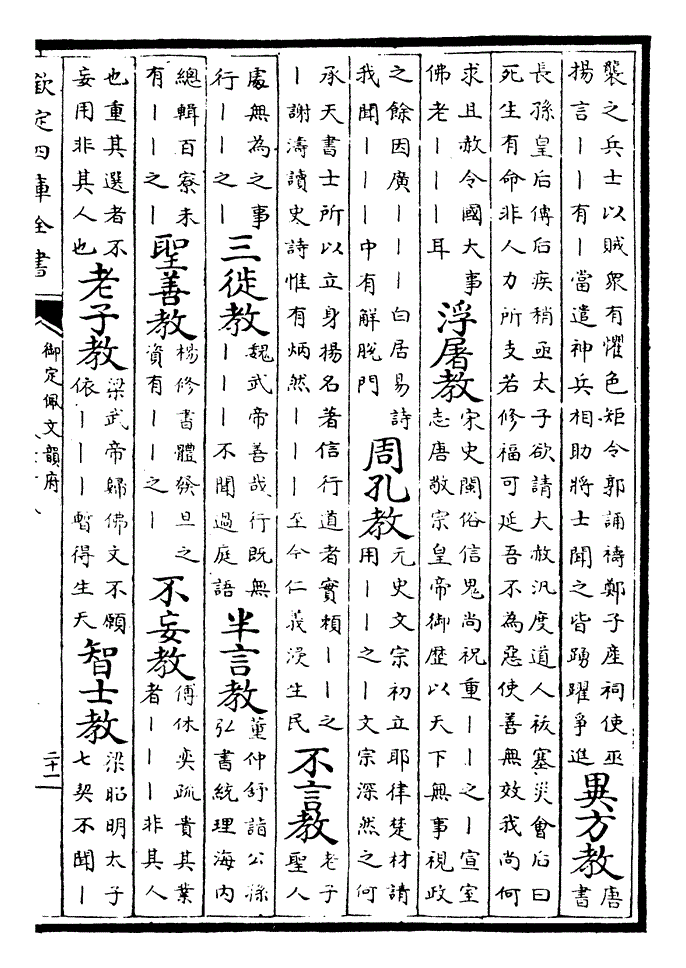 襲之兵士以賊衆有懼色矩令郭誦禱鄭子產祠使巫
揚言丨丨有丨當遣神兵相助將士聞之皆踴躍爭進
異方教
唐
書
長孫皇后傳后疾稍亟太子欲請大赦汎度道人祓塞災會后曰
死生有命非人力所支若修福可延吾不為惡使善無效我尚何
求且赦令國大事
佛老丨丨丨耳
浮屠教
宋史閩俗信鬼尚祝重丨丨之丨宣室
志唐敬宗皇帝御歷以天下無事視政
之餘因廣丨丨丨 白居易詩
我聞丨丨丨中有解脫門
周孔教
元史文宗初立耶律楚材請
用丨丨之丨文宗深然之何
承天書士所以立身揚名著信行道者實賴丨丨之
丨謝濤讀史詩惟有炳然丨丨丨至今仁義浸生民
不言教
老子
聖人
處無為之事
行丨丨之丨
三徙教
魏武帝善哉行既無
丨丨丨不聞過庭語
半言教
董仲舒詣公孫
弘書統理海内
總輯百寮未
有丨丨之丨
聖善教
楊修書體發旦之
資有丨丨之丨
不妄教
傅休奕疏貴其業
者丨丨丨非其人
也重其選者不
妄用非其人也
老子教
梁武帝歸佛文不願
依丨丨丨暫得生天
智士教
梁昭明太子
七契不聞丨
欽定四庫全書
御定佩文韻府
二十一